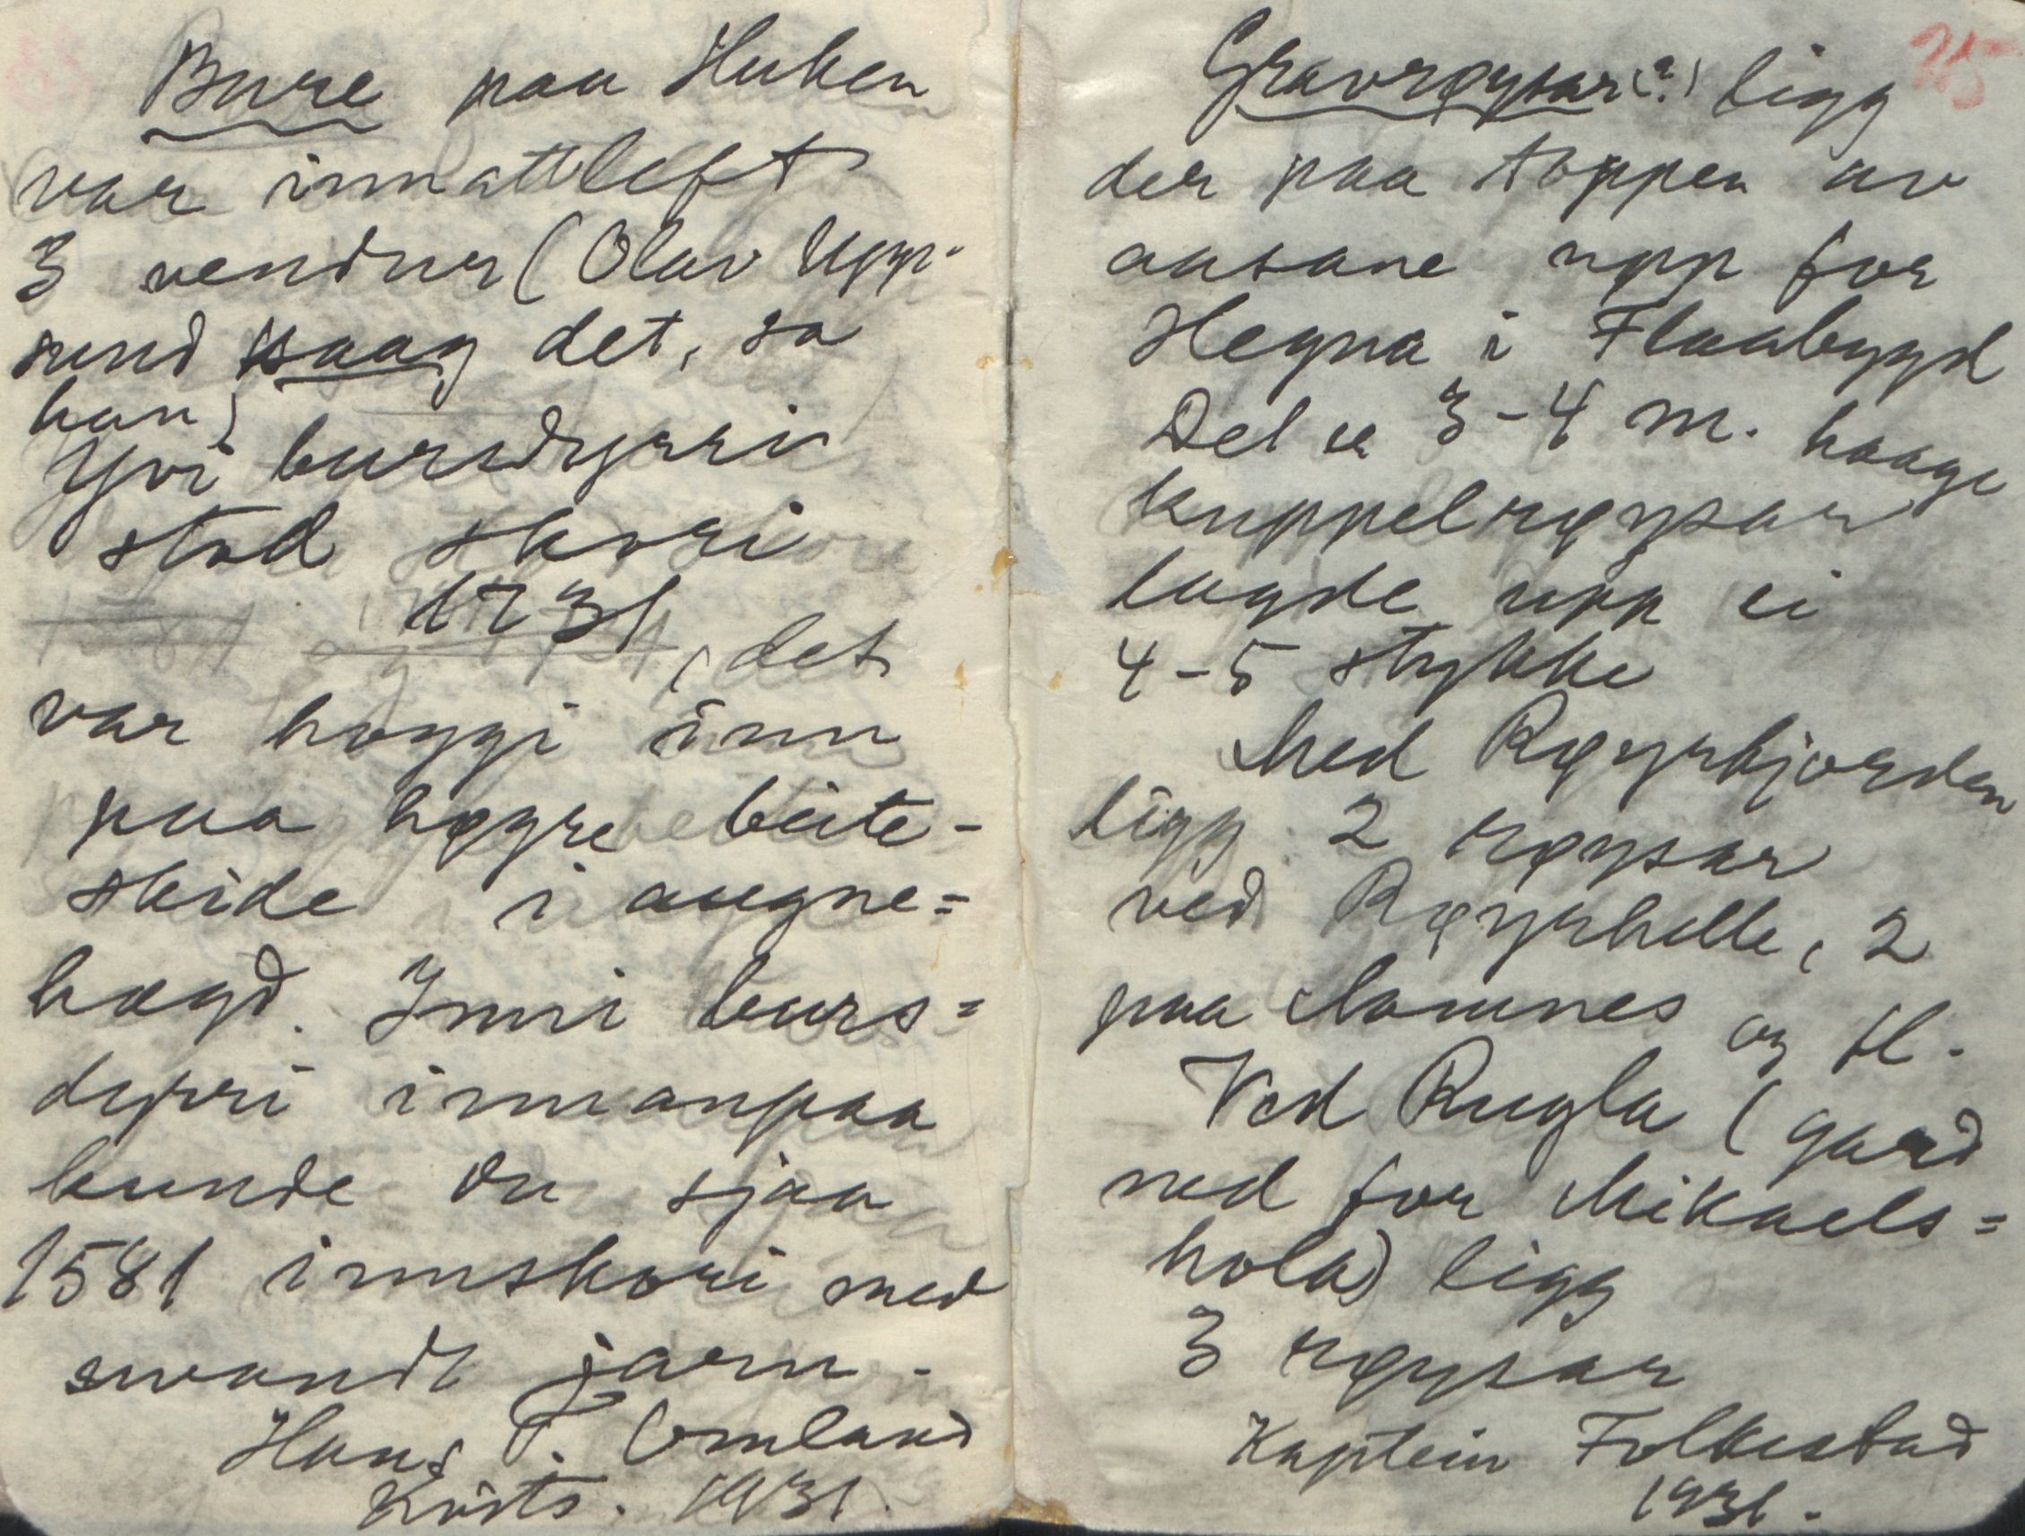 Bure paa Huken
var innattleft
3 vendur (Olav Upp-
sund saag det, sa
han)
Yvi bursdyrri
stod skori
1731, det
var hoggi inn
paa høgre beite-
skide i augne=
høgd. Inni burs=
dyrri innanpaa
kunde du sjaa
1581 innskori med
svandt jarn.
Hans T. Omland
Kvits. 1931.
25
Gravrøysar(?) ligg
der paa toppen av
aasane upp for
Hegna i Flaabygd
Det er 3-4 m. haage
kuppelrøysar
lagde upp ei
4-5 stykke
Med Røyrkjorden
ligg 2 røysar
ved Røyrhelle, 2
paa Momnes og fl.
Ved Rugla (gard
ned for Mikaels=
hola) ligg
3 røysar
Kaptein Folkestad
1931.